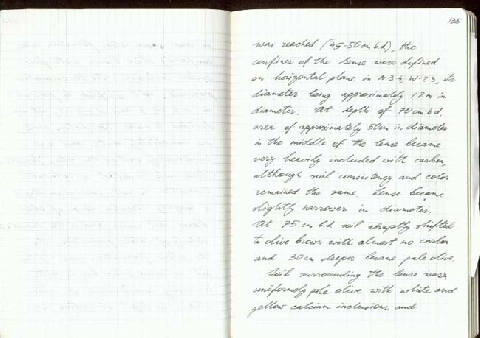 126
was reached (45-50cm b.d), the
confines of the lense were defined
on horizontal plane in N 3-4, W-23, its
diameter being approximately 1.8 m in
diameter. At depth of 70 cm b.d.
area of approximately 50cm in diameter
in the middle of the lense became
very heavily included with carbon
although soil consistency and color
remained the same. Lense became
slightly narrower in diameter.
At 75 cm b.d. soil abruptly shifted
to olive brown with almost no carbon
and 30cm deeper became pale olive.
Soil surrounding the lense was
uniformly pale olive with white and
yellow calcium inclusions, and